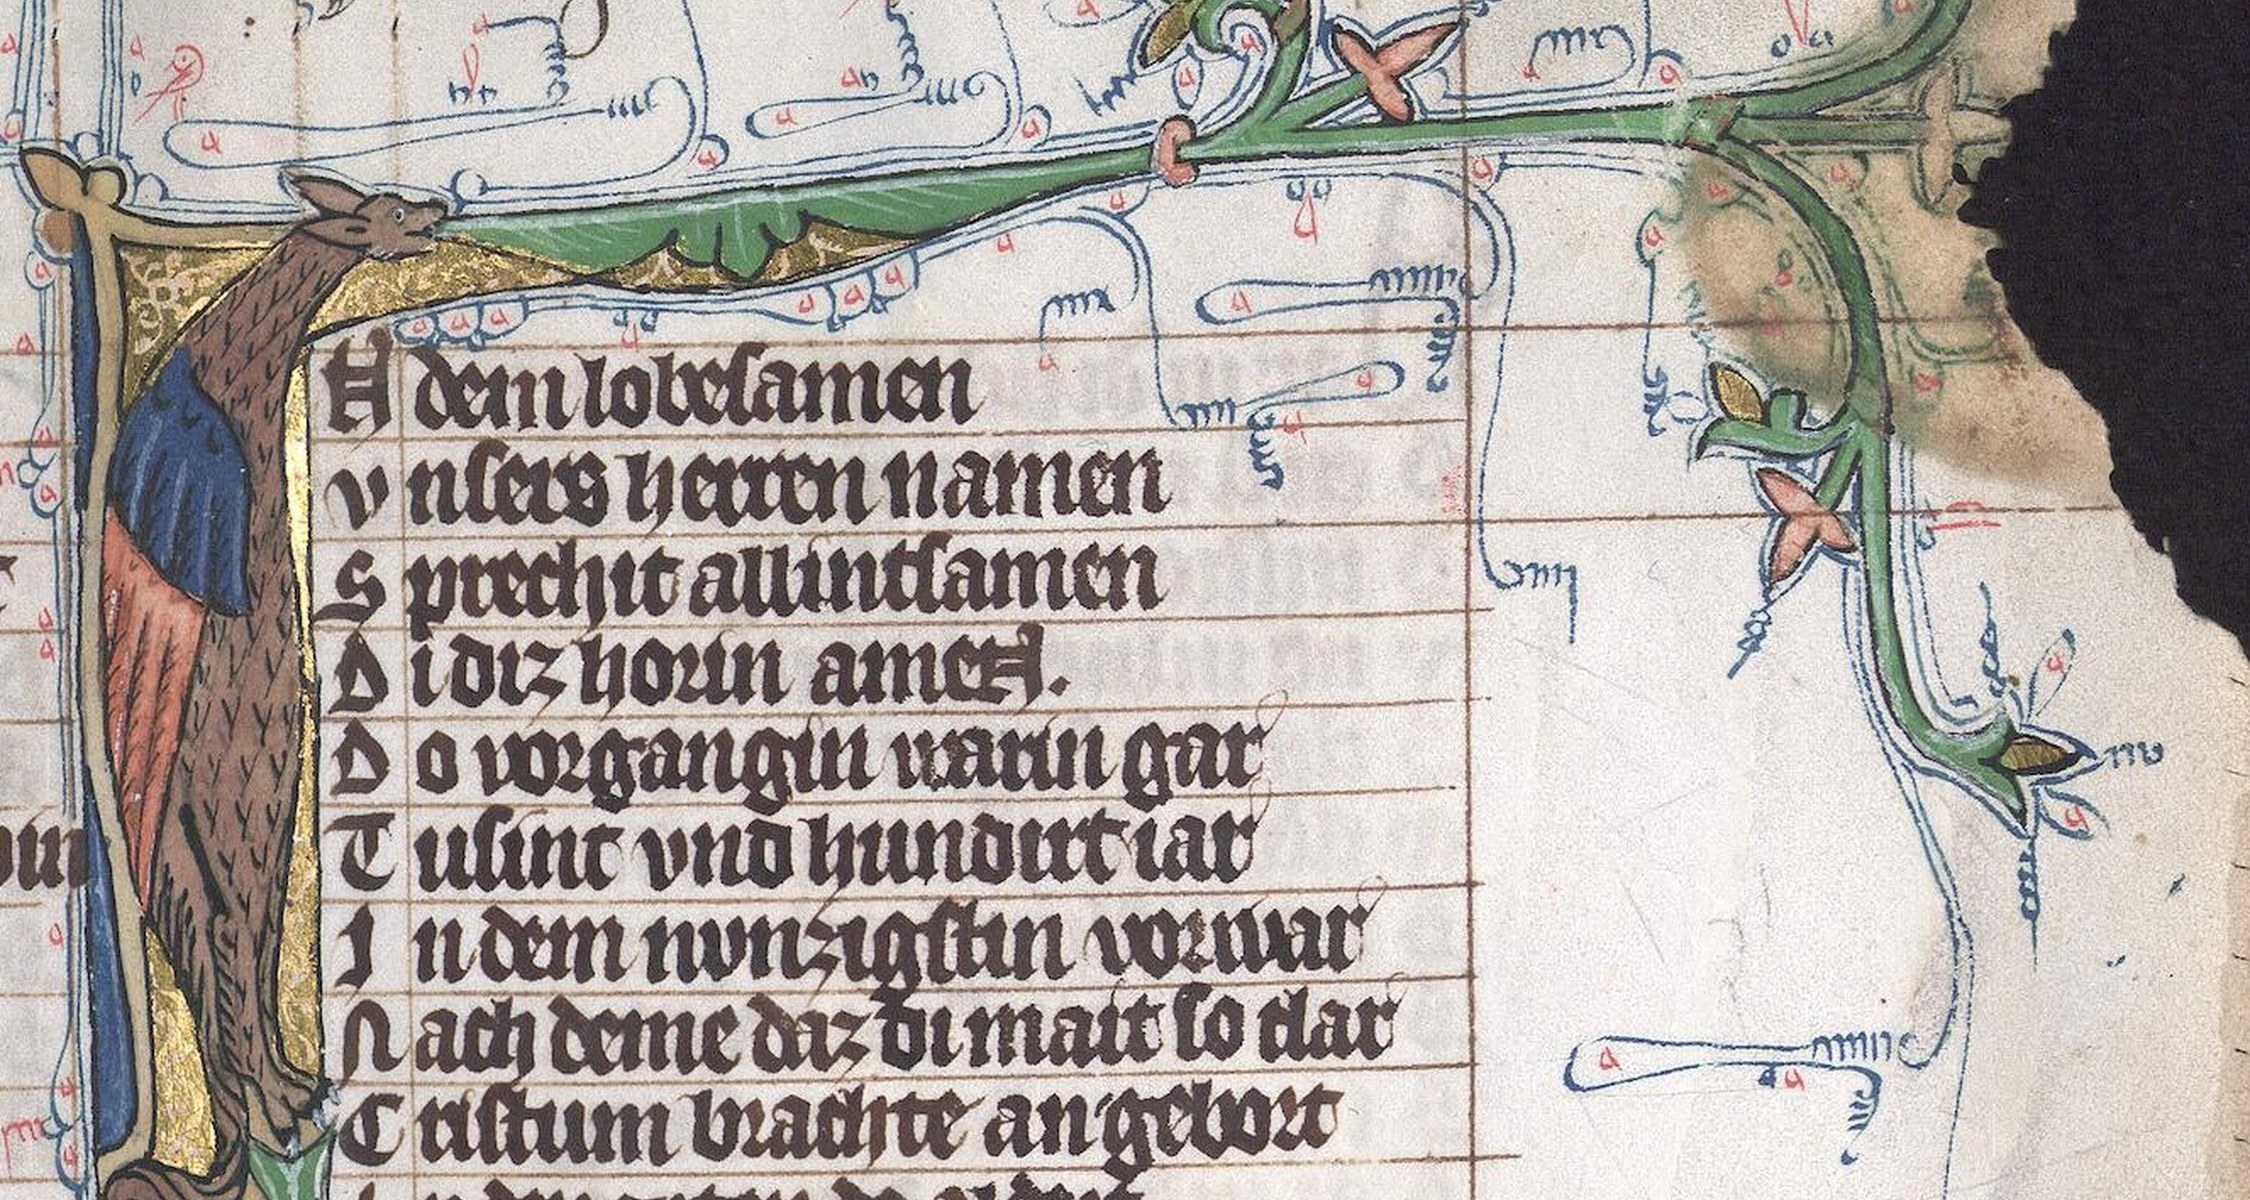 IN dem lobesamen
vnsers herren namen
Sprechit allintsamen
Di diz horin ameN.
Do vorgangin warin gar
Tusint vnd hundirt iar
In dem nvnzigstin vorwar
Nach deme daz di mait so clar
Cristum brachte an gebort